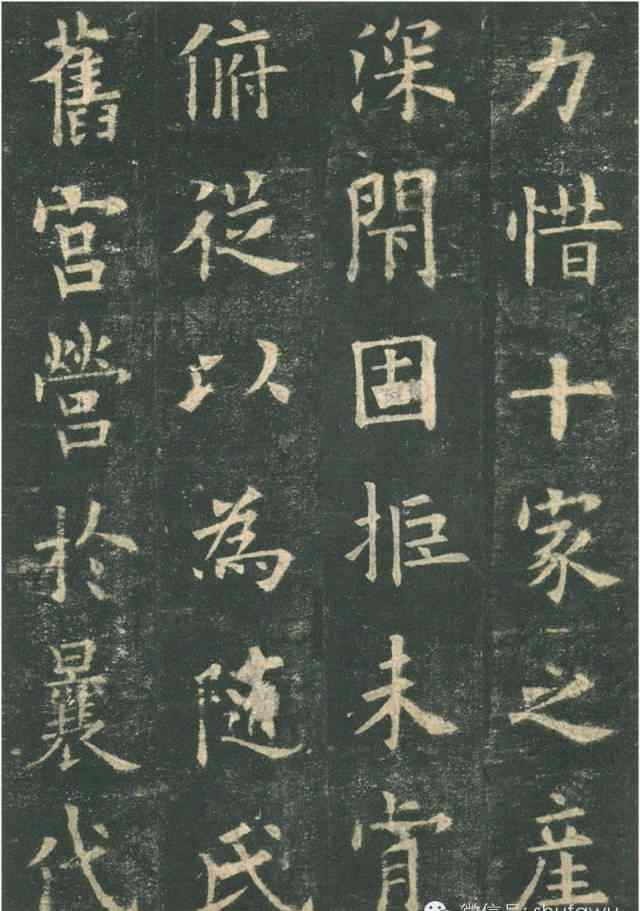 力惜十家之產
深閇固拒未肯
俯從以為隨氏
舊宮營於曩代
微信号: shufawu